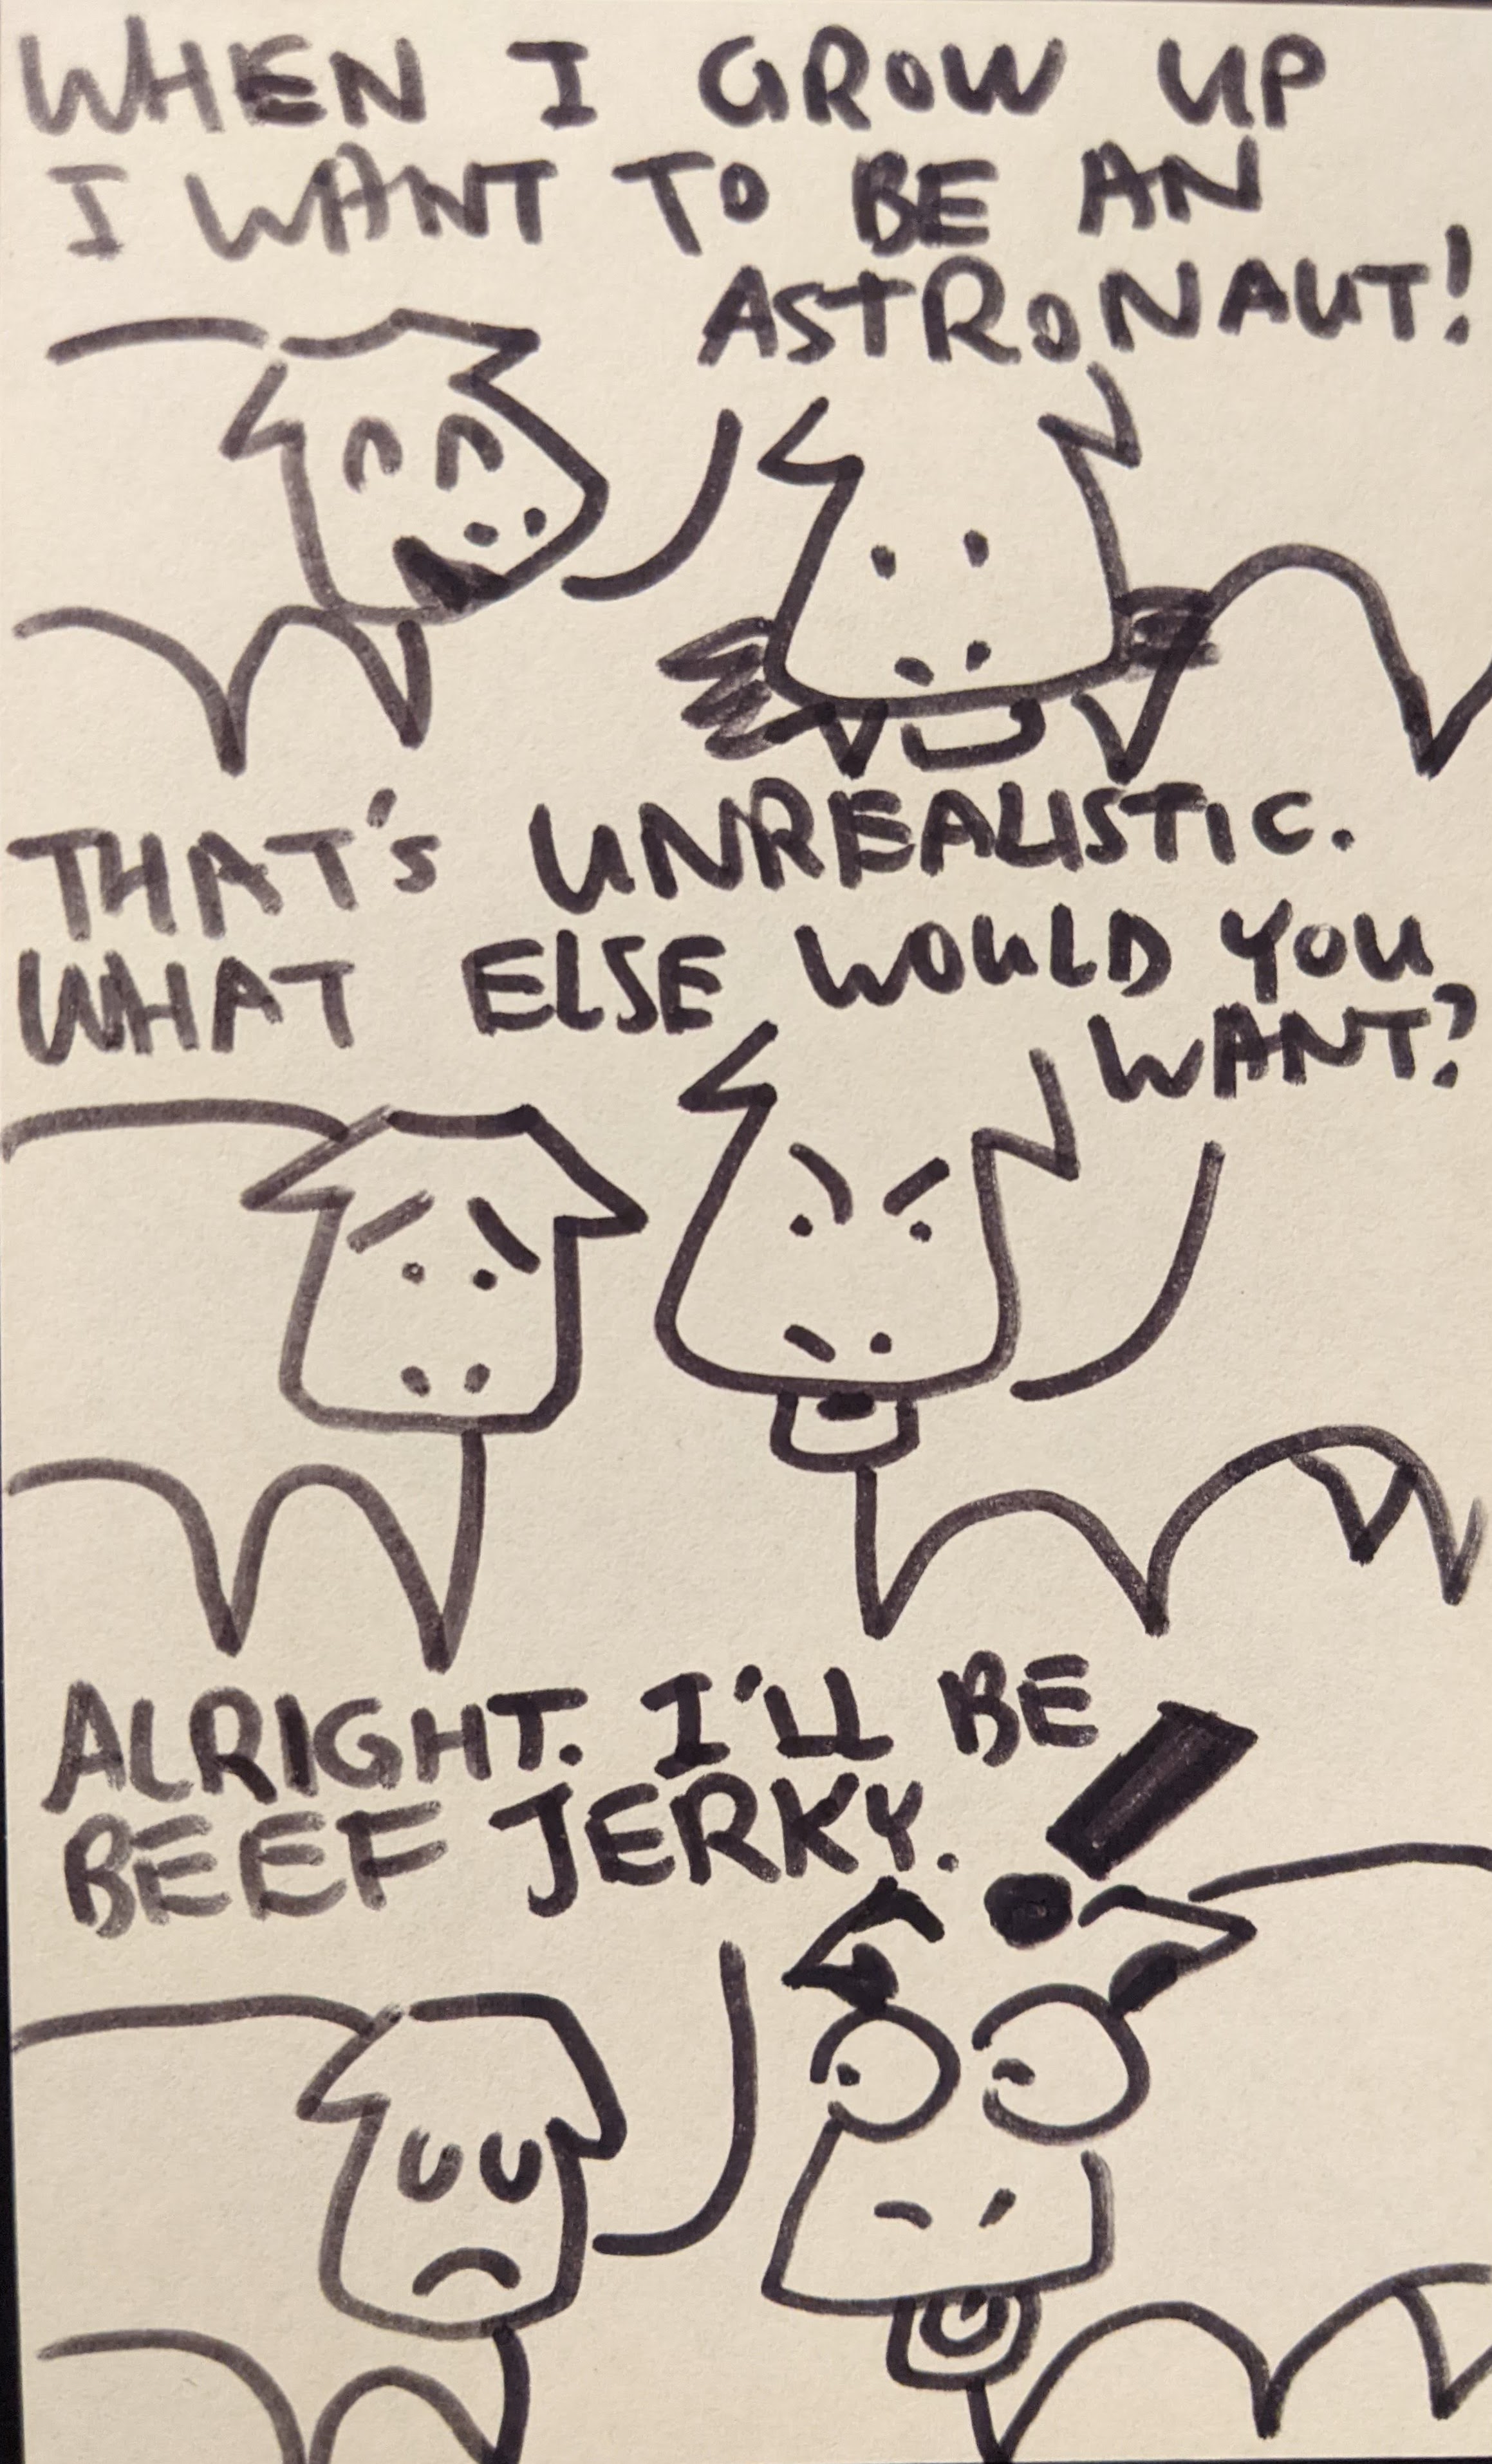 WHEN I GROW UP
I WANT TO BE AN
ASTRONAUT!
THAT'S UNREALISTIC.
WHAT ELSE WOULD YOU
WANT?
ALRIGHT. I'LL BE
BEEF JERKY.